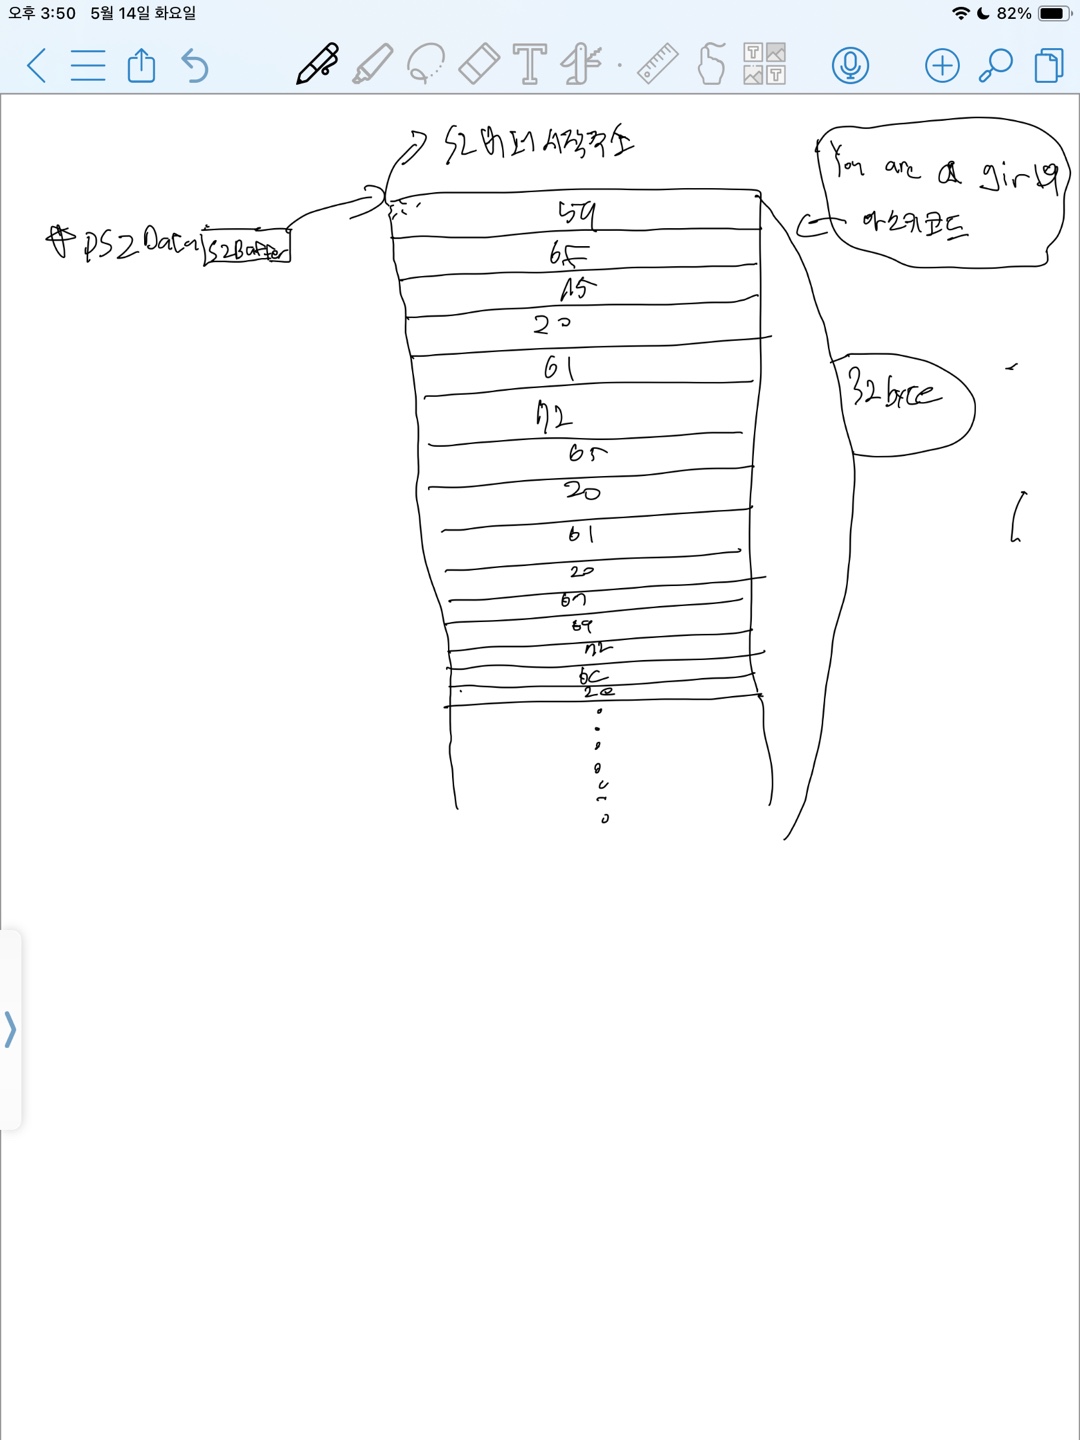 오후 3:50 5월 14일 화요일
82%
S2 버퍼 시작주소
You are a girl의
아스키코드
*pS2Data
S2Buffer
59
6F
75
20
61
72
65
20
61
20
67
69
72
6C
2e
32byte